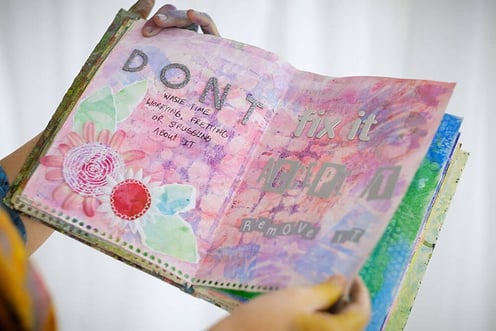 DONT
WASTE TIME
WORRYING, FRETTING
OR STRUGGLING
ABOUT IT
fix it
REMOVE IT